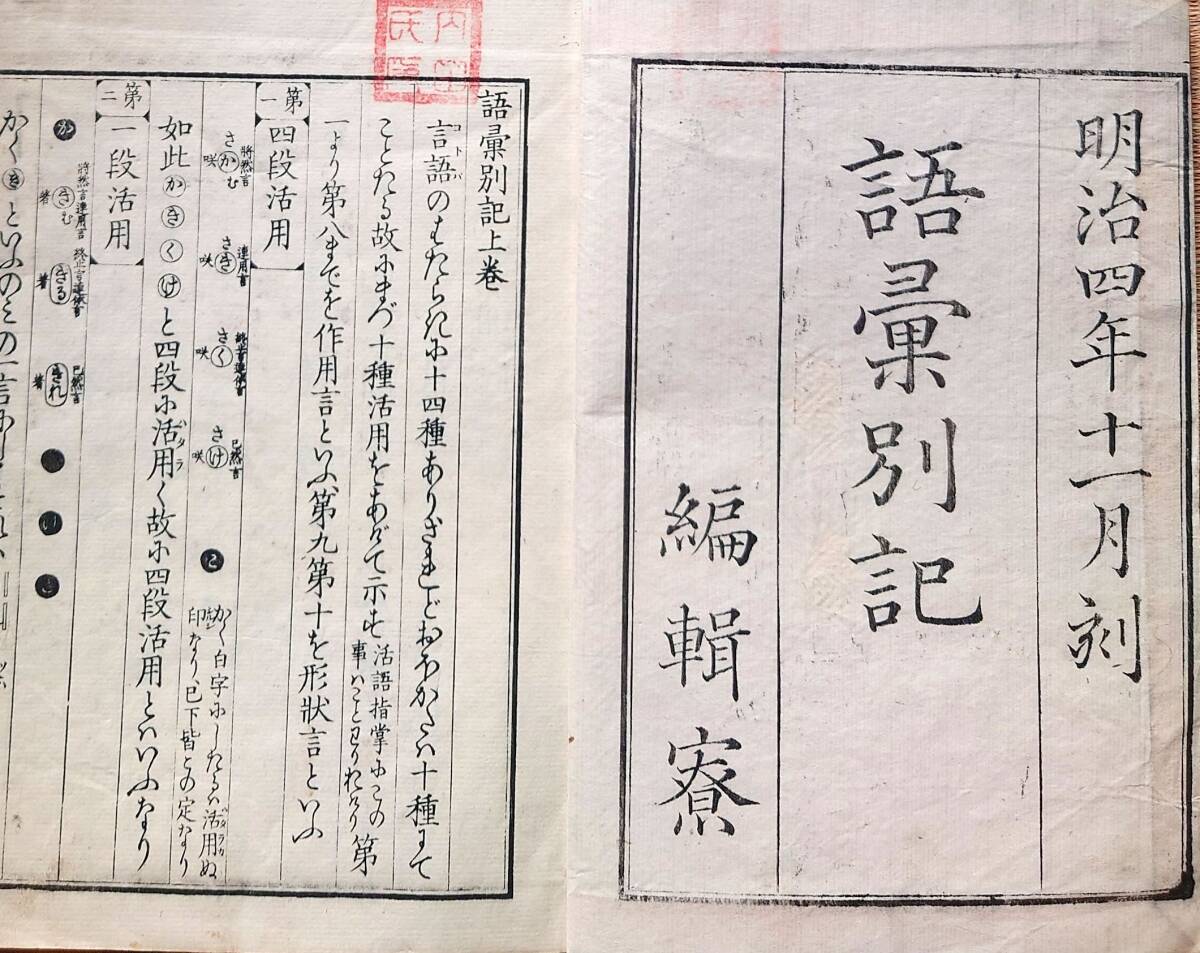 明治四年十一月刻
語彙別記
編輯寮
語彙別記上巻
言語のはたらきに十四種ありされどおほかたは十種にて
ことたる故にまづ十種活用をあげて示す活語指掌にこの事はことわりおけり第
一より第八までを作用言といふ第九第十を形状言といふ
第一 四段活用
將然言 さかむ 咲
連用言 さき 咲
終止言連体言 さく 咲
已然言 さけ 咲
かく白字にしたるは活用ぬ印なり已下皆この定なり
如此かきくけと四段に活用く故に四段活用とはいふなり
第二 一段活用
將然言連用言 きむ 著
終止言連体言 きる 著
已然言 きれ 著
かくきといふのみの一言に